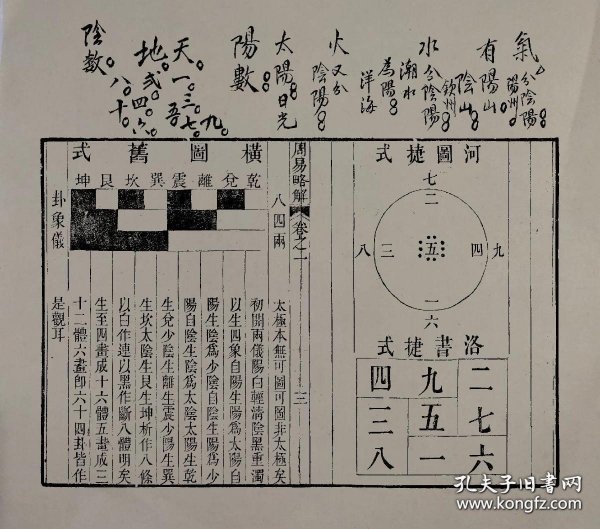 氣分陰陽
陽州
有陽山
陰山
欽州
水分陰陽
潮水
為陽
洋海
火又分
陰陽
太陽日光
陽數
天一三五七九
地式四六
八十
陰数
河圖捷式
七二
八三五四九
一六
洛書捷式
四九二
三五七
八一六
周易略解 卷之一 三
橫圖舊式
乾兌離震巽坎艮坤
八四兩
卦象儀
太極本無可圖可圖非太極矣
初開兩儀陽白輕清陰黑重濁
以生四象自陽生陽爲太陽自
陽生陰爲少陰自陰生陽爲少
陽自陰生陰爲太陰太陽生乾
生兌少陰生離生震少陽生巽
生坎太陰生艮生坤析作八條
以白作連以黑作斷八體明矣
生至四畫成十六體五畫成三
十二體六畫卽六十四卦皆作
是觀耳
孔夫子旧书网
www.kongfz.com